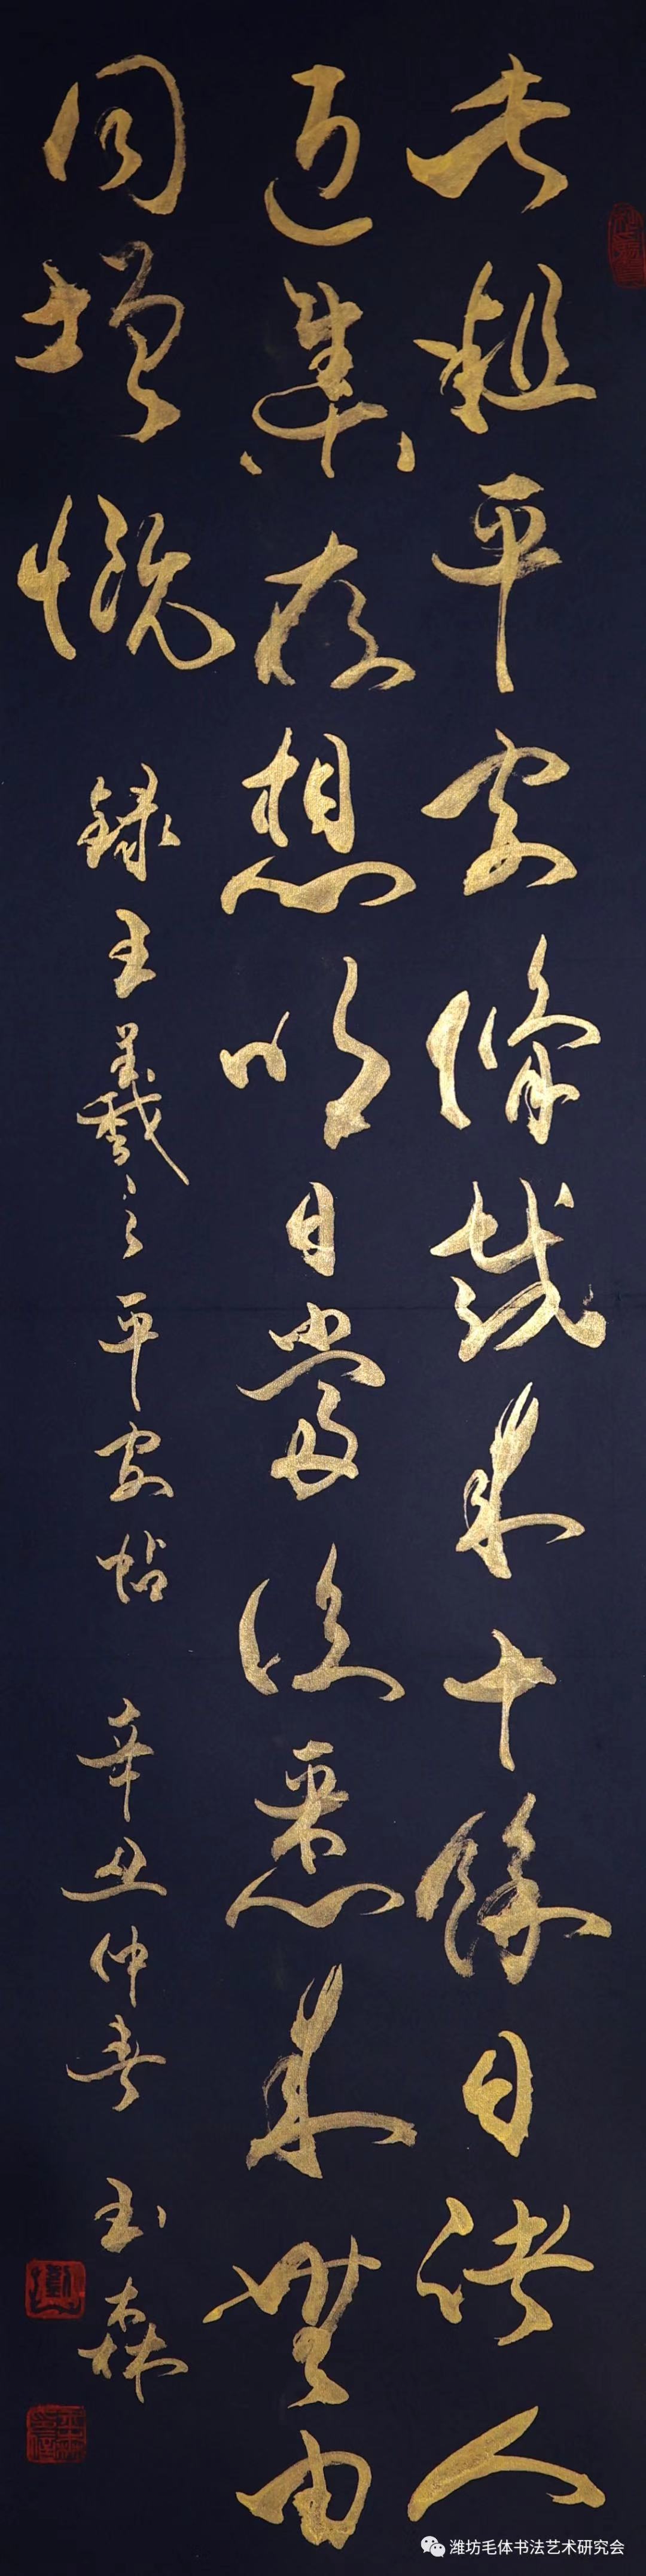 此粗平安修載来十餘日諸人
近集存想明日當復悉来無由
同增慨 錄王羲之平安帖 辛丑仲春 玉森
潍坊毛体书法艺术研究会